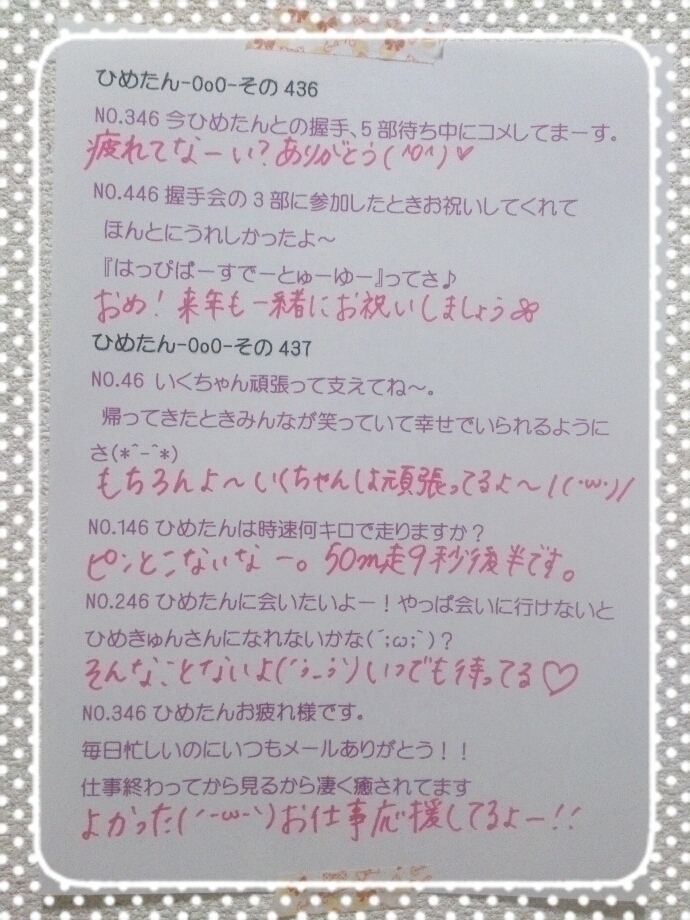 ひめたん-OoO-その436
NO.346 今ひめたんとの握手、5部待ち中にコメしてまーす。
疲れてなーい?ありがとう(^o^)♥
NO.446 握手会の3部に参加したときお祝いしてくれて
ほんとにうれしかったよ～
『はっぴばーすでーとゅーゆー』ってさ♪
おめ!来年も一緒にお祝いしましょう
ひめたん-OoO-その437
NO.46 いくちゃん頑張って支えてね～。
帰ってきたときみんなが笑っていて幸せでいられるように
さ(*^-^*)
もちろんよ～いくちゃんは頑張ってるよ～/(・ω・)/
NO.146 ひめたんは時速何キロで走りますか?
ピンとこないなー。50m走9秒後半です。
NO.246 ひめたんに会いたいよー!やっぱ会いに行けないと
ひめきゅんさんになれないかな(´;ω;`)?
そんなことないよ(´う_う`)いつでも待ってる♡
NO.346 ひめたんお疲れ様です。
毎日忙しいのにいつもメールありがとう!!
仕事終わってから見るから凄く癒されてます
よかった(´-ω-`)お仕事応援してるよー!!